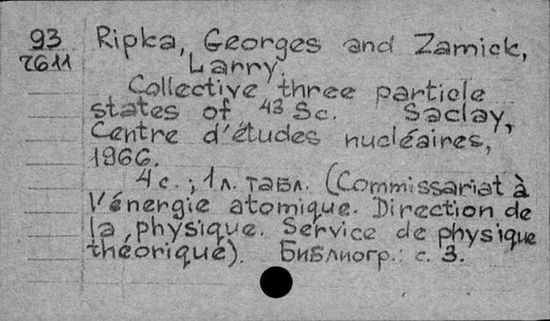 93
7611
Ripka, Georges and Zamick,
Larry.
Collective three particle
states of ⁴³Sc. Saclay,
Centre d'études nucléaires,
1966.
4 с.; 1 л. табл. (Commissariat à
l'énergie atomique. Direction de
la physique. Service de physique
théorique). Библиогр.: с. 3.